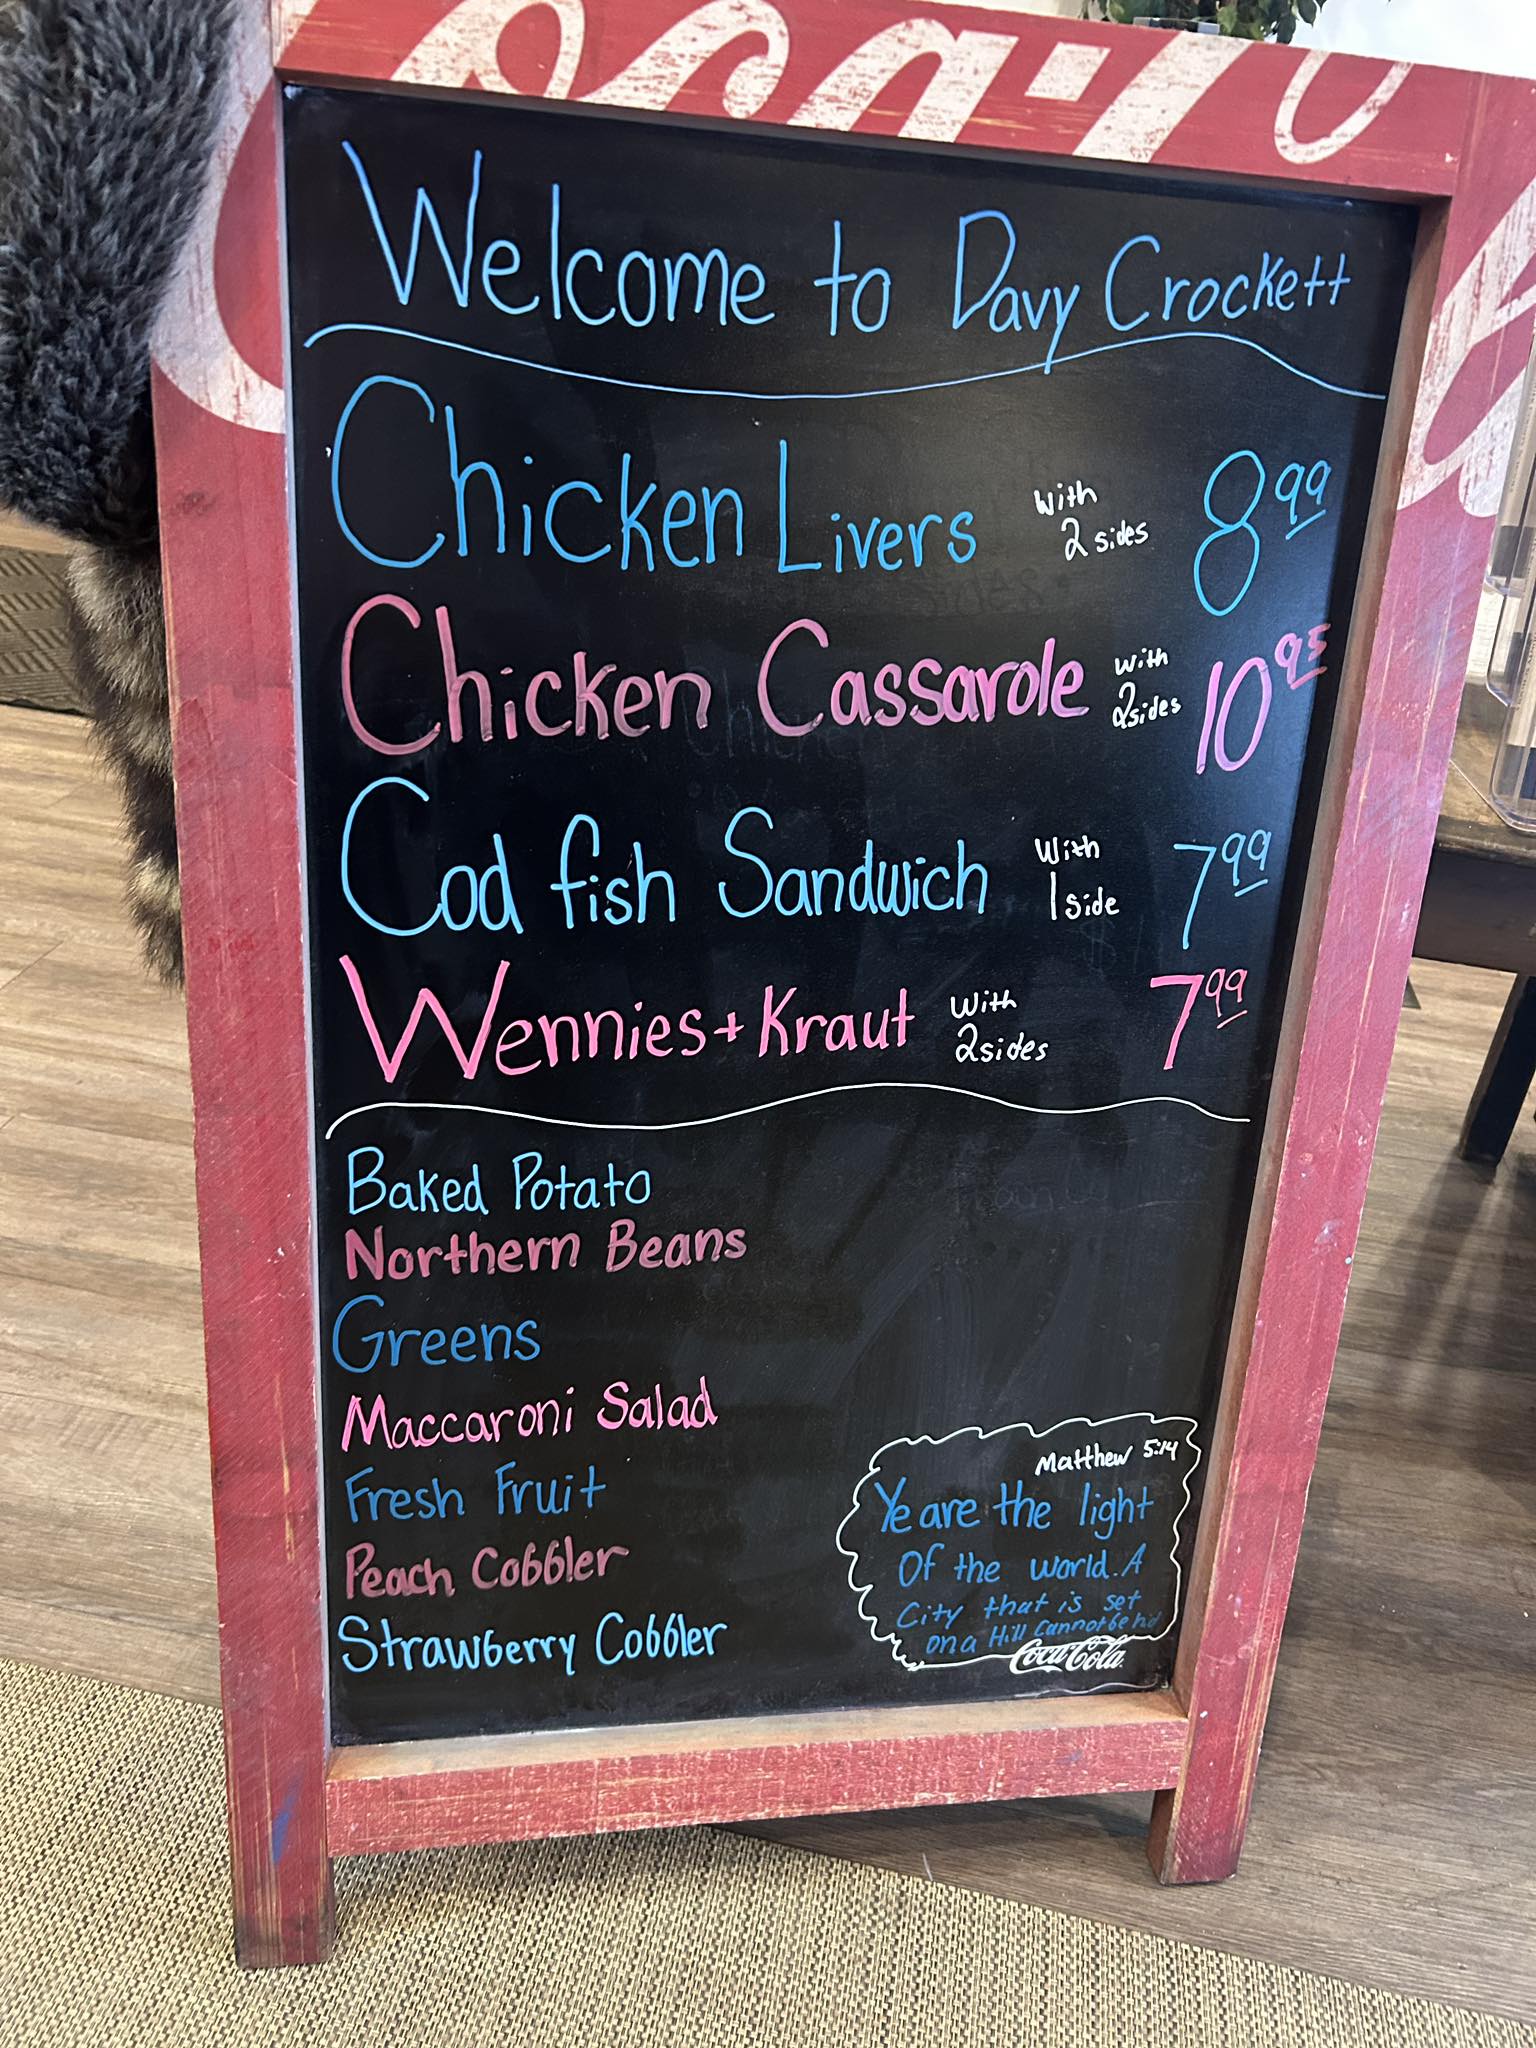 Coca-Cola
Welcome to Davy Crockett
Chicken Livers with 2 sides 8.99
Chicken Cassarole with 2 sides 10.95
Cod fish Sandwich With 1 side 7.99
Wennies + Kraut With 2 sides 7.99
Baked Potato
Northern Beans
Greens
Maccaroni Salad
Fresh Fruit
Peach Cobbler
Strawberry Cobbler
Matthew 5:14
Ye are the light
Of the world. A
City that is set
on a Hill cannot be hid
Coca-Cola